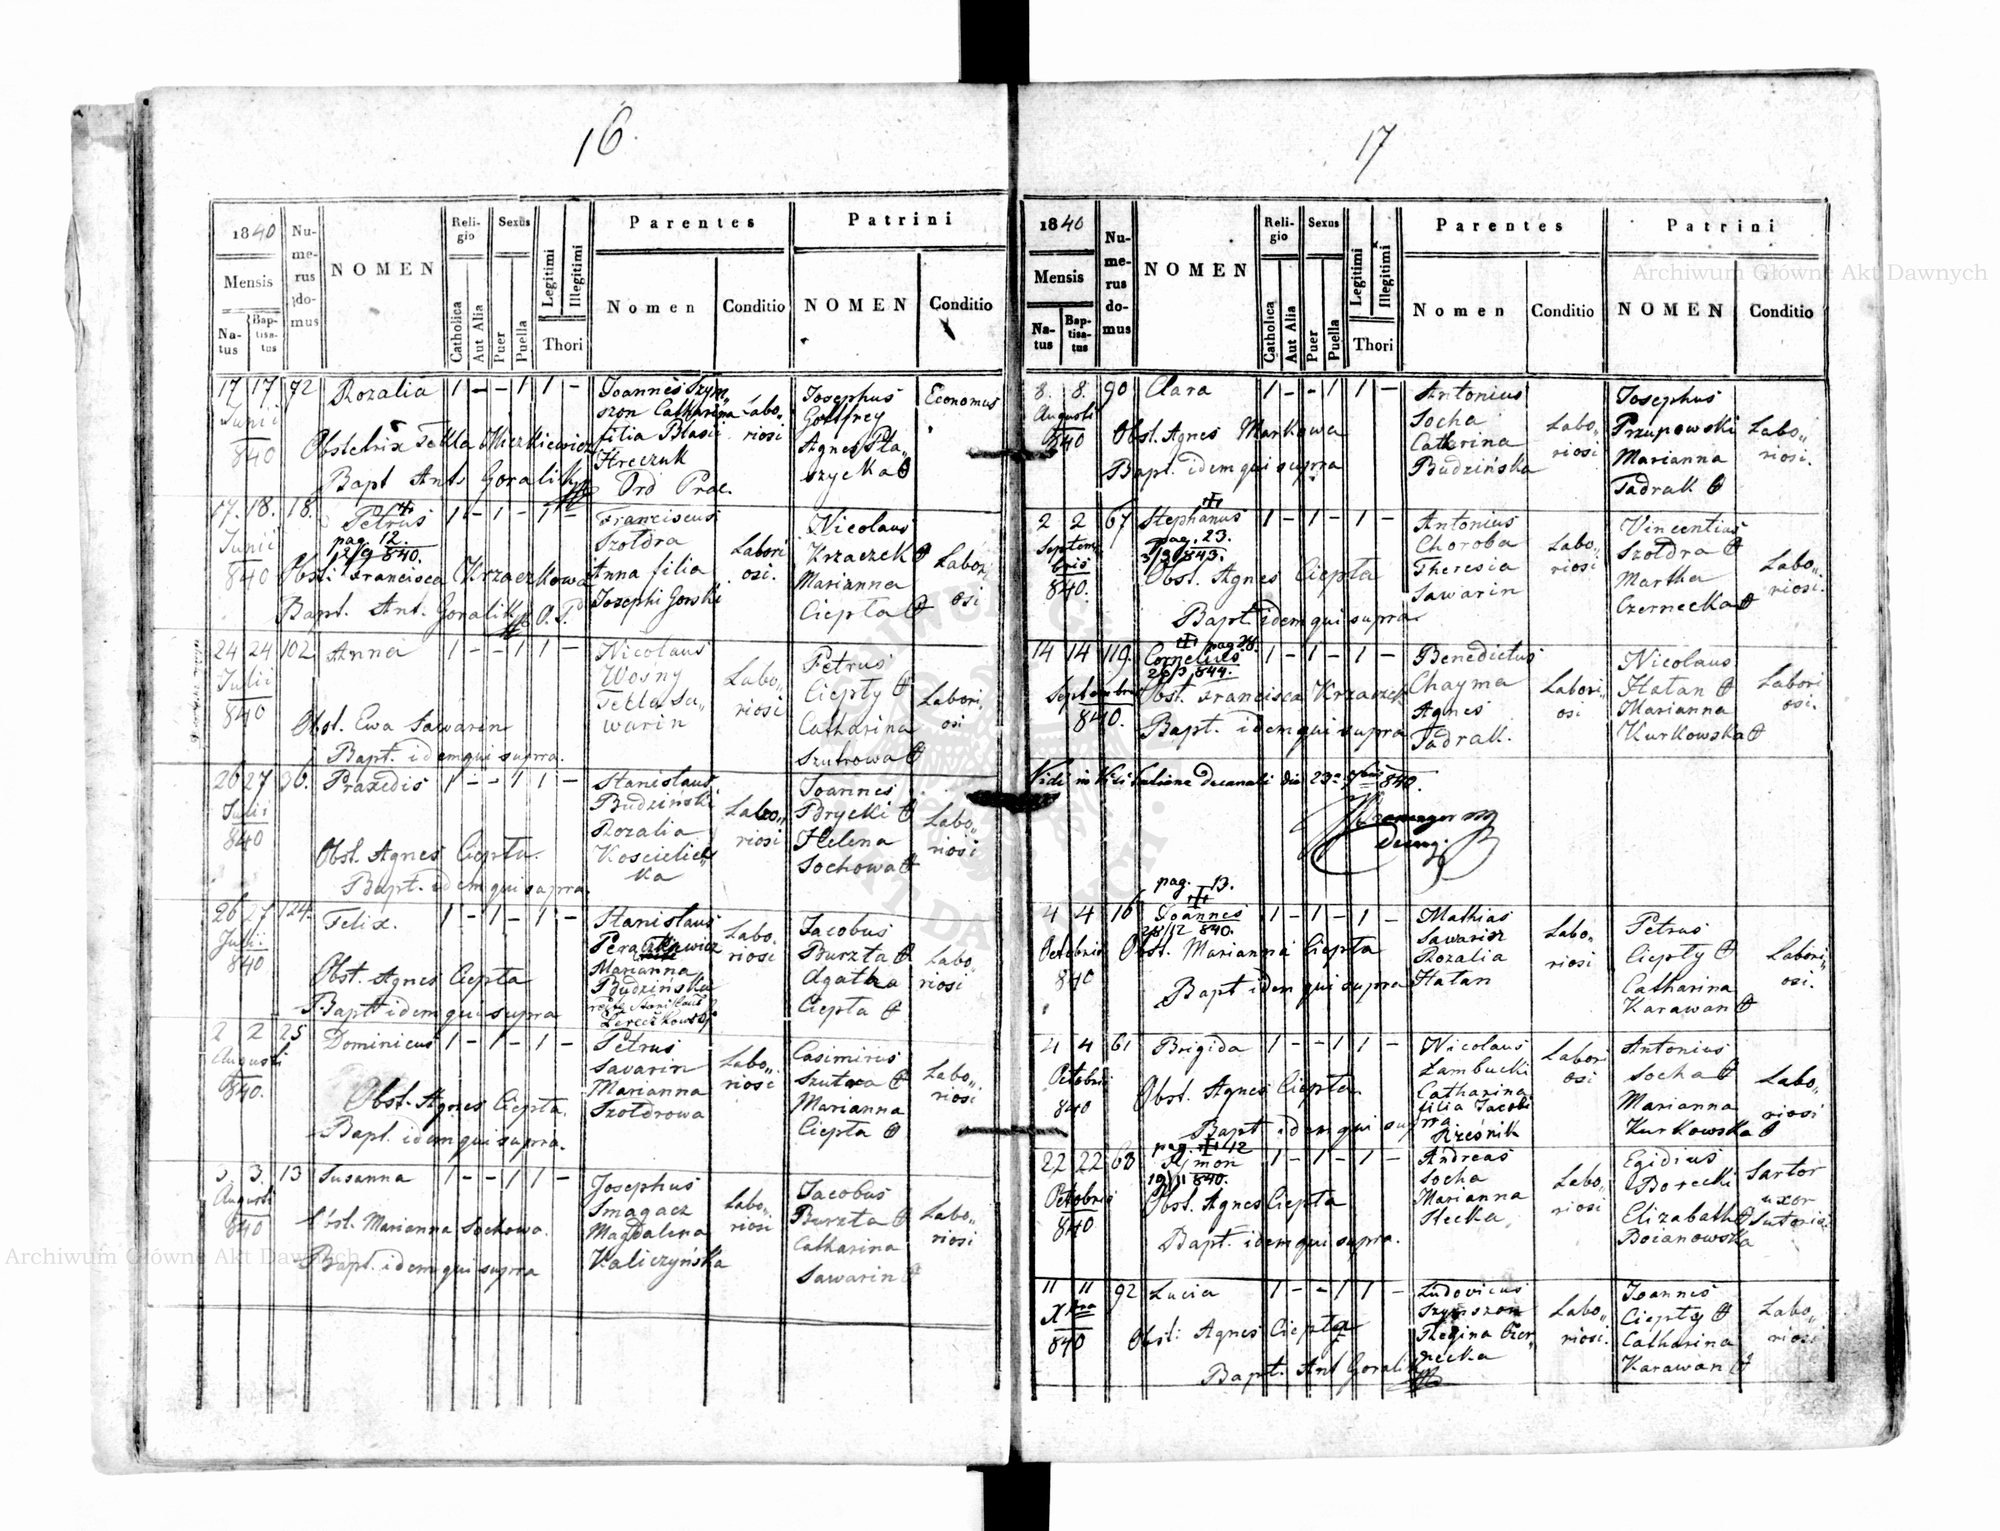 16.
1840
Mensis
Natus
Baptisatus
Numerus domus
NOMEN
Religio
Catholica
Aut Alia
Sexus
Puer
Puella
Legitimi
Illegitimi
Thori
Parentes
Nomen
Conditio
Patrini
NOMEN
Conditio
17 17 72 Rozalia 1 - - 1 1 -
Junii
840
Obstetrix Tekla
Bapt Ant. Goralik
Joannes Szym„
szon Catharina
filia Blasii
Hreczuk
Ord Prae.
Labo„
riosi
Josephus
Gottfrey
Agnes Pła„
szycka
Economus
17. 18. 18. Petrus 1 - 1 - 1 -
pag. 12.
12/9 840.
Junii
840
Obst. Francisca Krzaczkowa
Bapt. Ant. Goralik O. P.
Franciscus
Szołdra
Anna filia
Josephi Gorski
Labori
osi.
Nicolaus
Krzaczek
Marianna
Ciepła
Labori
osi
24 24 102 Anna 1 - - 1 1 -
Julii
840
Obst. Ewa Sawarin
Bapt. idem qui supra.
Nicolaus
Wosny
Tekla Sa„
warin
Labo„
riosi
Petrus
Ciepły
Catharina
Szutrowa
Labori„
osi
26 27 36. Praxedis 1 - - 1 1 -
Julii
840
Obst. Agnes Ciepta.
Bapt. idem qui supra.
Stanislaus
Budzinski
Rozalia
Koscieliec
ka
Labo„
riosi
Joannes
Brycki
Helena
Sochowa
Labo„
riosi
26 27 124 Felix. 1 - 1 - 1 -
Juli.
840
Obst. Agnes Ciepta
Bapt idem qui supra
Stanislaus
Marianna
Budzińska
Labo„
riosi
Jacobus
Burzta
Agatha
Ciepta
Labo„
riosi
2 2 25 Dominicus 1 - 1 - 1 -
Augusti
840.
Obst. Agnes Ciepta.
Bapt. idem qui supra.
Petrus
Savarin
Marianna
Szołdrowa
Labo„
riosi
Casimirus
Szutra
Marianna
Ciepta
Labo„
riosi
3. 3. 13 Susanna 1 - - 1 1 -
Augusti
840
Obst. Marianna Sochowa.
Bapt. idem qui supra
Josephus
Smagacz
Magdalena
Kaliczyńska
Labo„
riosi
Jacobus
Burzta
Catharina
Sawarin
Labo„
riosi
17
1840
Mensis
Natus
Baptisatus
Numerus domus
NOMEN
Religio
Catholica
Aut Alia
Sexus
Puer
Puella
Legitimi
Illegitimi
Thori
Parentes
Nomen
Conditio
Patrini
NOMEN
Conditio
8. 8. 90 Clara 1 - - 1 1 -
Augusti
840
Obst. Agnes Markowa
Bapt. idem qui supra
Antonius
Socha
Catharina
Budzińska
Labo„
riosi
Josephus
Przupowski
Marianna
Jadrak
Labo„
riosi.
2 2 67 Stephanus 1 - 1 - 1 -
pag. 23.
3/9 843.
Septem
bris
840.
Obst. Agnes Ciepta
Bapt. idem qui supra.
Antonius
Choroba
Theresia
Sawarin
Labo„
riosi
Vincentius
Szołdra
Martha
Czernecka
Labo„
riosi.
14 14 119. Cornelius 1 - 1 - 1 -
Septembris
840.
Obst. Francisca Krzaczek
Bapt. idem qui supra
Benedictus
Chayma
Agnes
Jadrak.
Labori„
osi
Nicolaus
Hatan
Marianna
Kurkowska
Labori
osi.
pag. 13.
4 4 16 Joannes 1 - 1 - 1 -
28/12 840.
Octobris
840
Obst. Marianna Ciepta
Bapt idem qui supra
Mathias
Sawarin
Rozalia
Hatan
Labo„
riosi
Petrus
Ciepty
Catharina
Karawan
Labori„
osi.
4 4 61 Brigida 1 - - 1 1 -
Octobris
840
Obst. Agnes Ciepta.
Bapt idem qui supra
Nicolaus
Lambucki
Catharina
filia Jacobi
Rześnik
Labori
osi
Antonius
Socha
Marianna
Kurkowska
Labo„
riosi
pag. 12
22 22 63 Symon 1 - 1 - 1 -
19/11 840.
Octobris
840
Obst. Agnes Ciepta
Bapt. idem qui supra.
Andreas
Socha
Marianna
Labo„
riosi
Egidius
Borecki
Elizabath
Boianowska
Sartor
uxor
Sutoris.
11 11 92 Lucia 1 - - 1 1 -
Xbra
840
Obst: Agnes Ciepta
Bapt. Ant Goralik
Ludovicus
Szymszon
Regina Czer„
necka
Labo„
riosi.
Joannes
Ciepty
Catharina
Karawan
Labo„
riosi
Archiwum Główne Akt Dawnych
Archiwum Główne Akt Dawnych